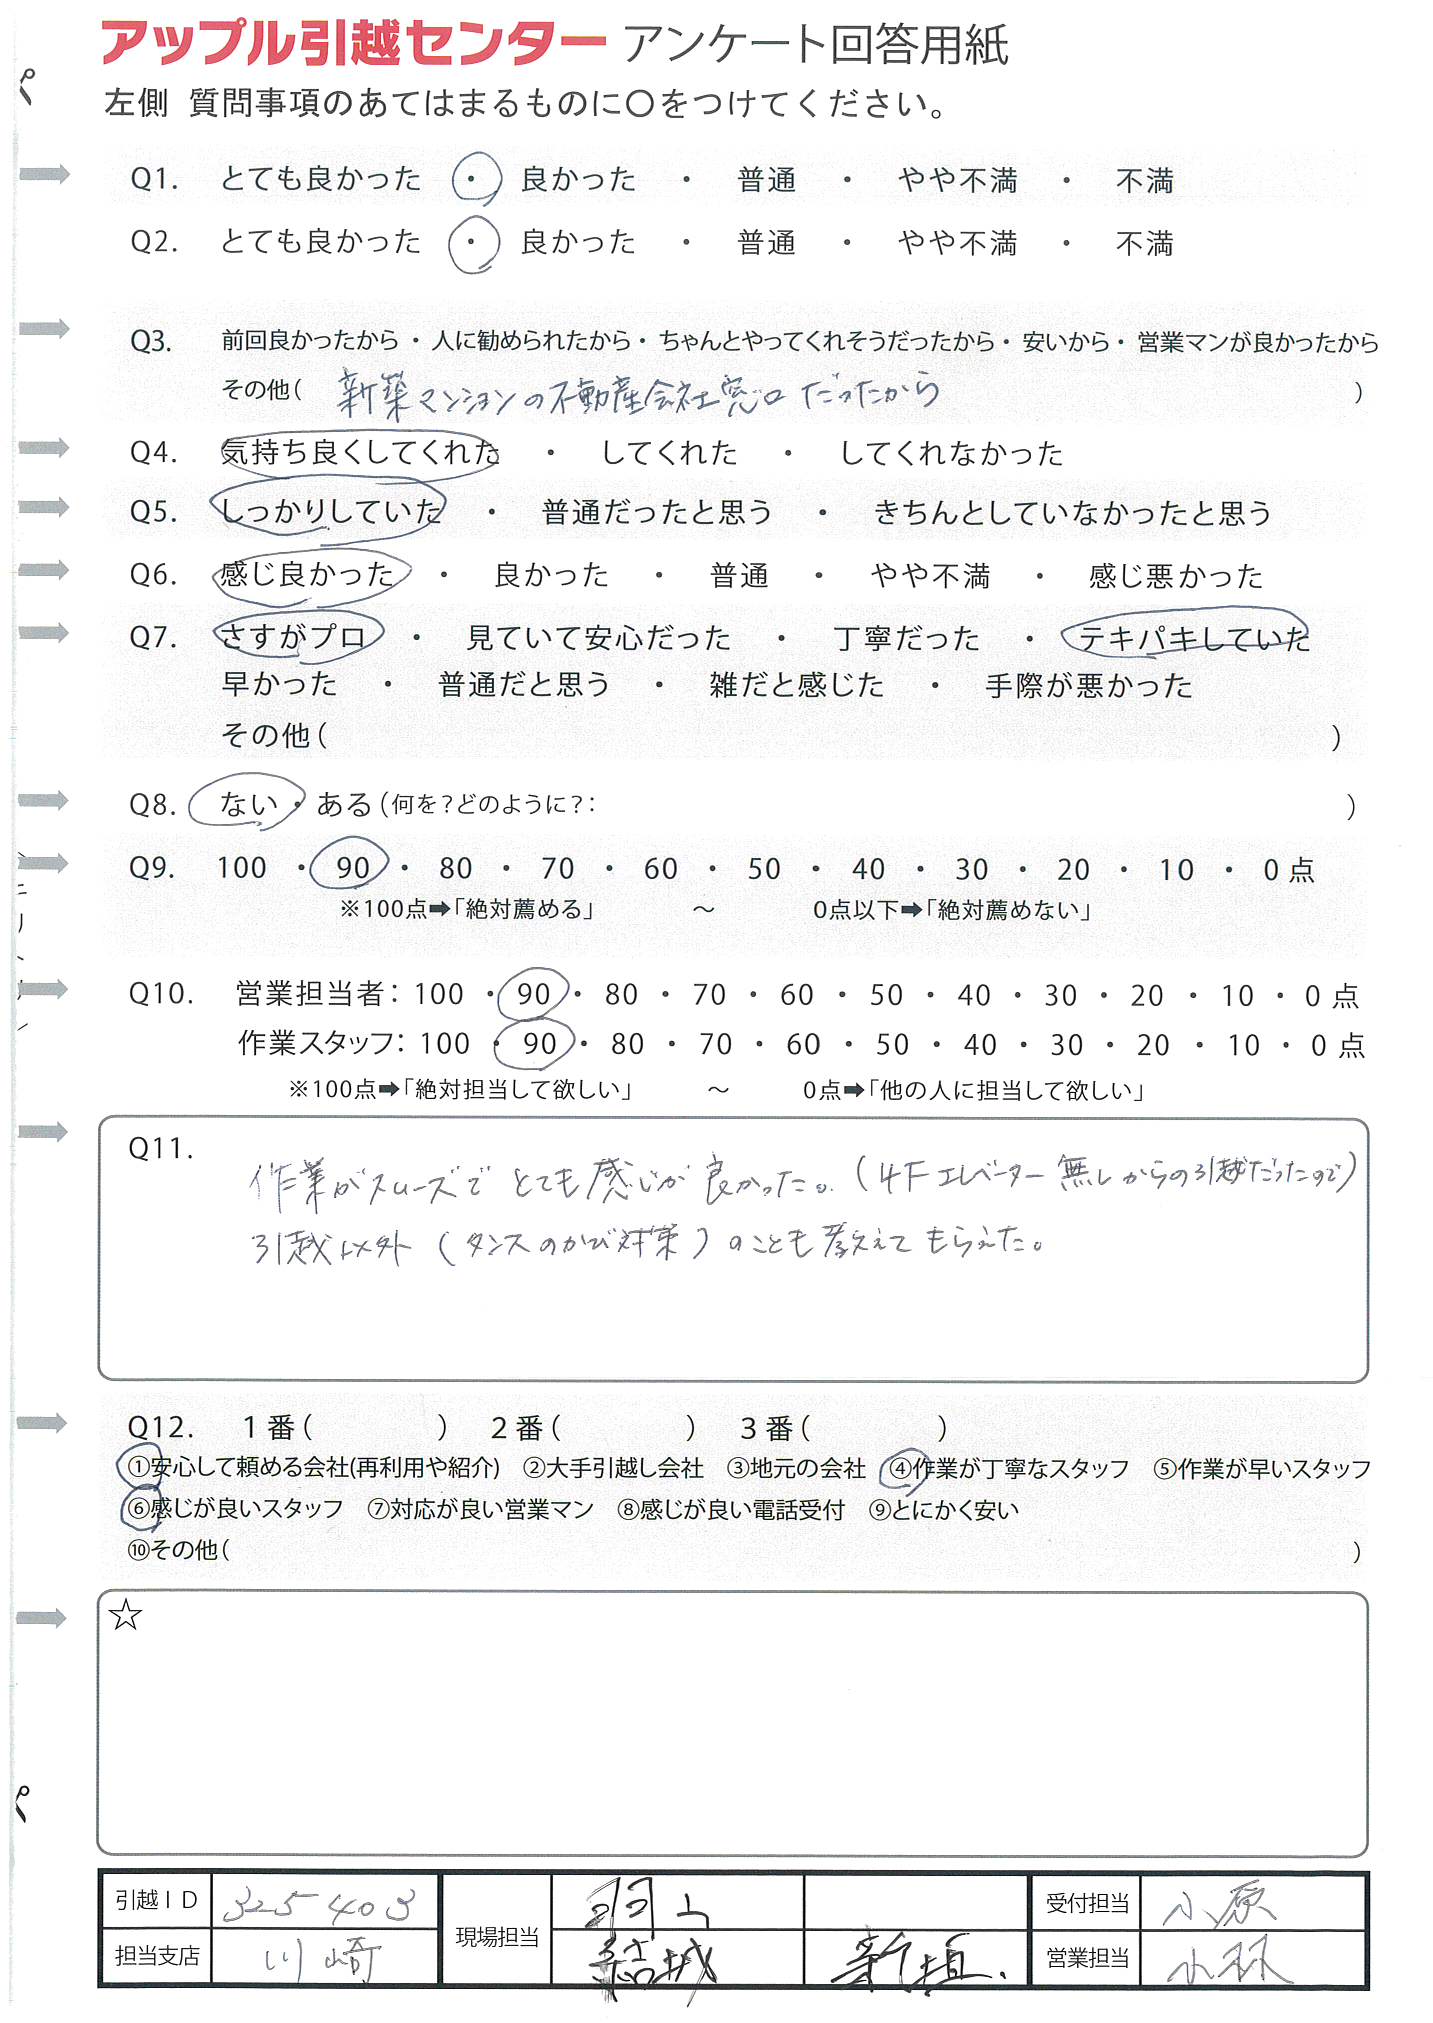 アップル引越センター アンケート回答用紙
左側 質問事項のあてはまるものに〇をつけてください。
Q1. とても良かった ・ 良かった ・ 普通 ・ やや不満 ・ 不満
Q2. とても良かった ・ 良かった ・ 普通 ・ やや不満 ・ 不満
Q3. 前回良かったから・人に勧められたから・ちゃんとやってくれそうだったから・安いから・営業マンが良かったから
その他( 新築マンションの不動産会社窓口だったから )
Q4. 気持ち良くしてくれた ・ してくれた ・ してくれなかった
Q5. しっかりしていた ・ 普通だったと思う ・ きちんとしていなかったと思う
Q6. 感じ良かった ・ 良かった ・ 普通 ・ やや不満 ・ 感じ悪かった
Q7. さすがプロ ・ 見ていて安心だった ・ 丁寧だった ・ テキパキしていた
早かった ・ 普通だと思う ・ 雑だと感じた ・ 手際が悪かった
その他( )
Q8. ない・ある(何を?どのように?: )
Q9. 100 ・ 90 ・ 80 ・ 70 ・ 60 ・ 50 ・ 40 ・ 30 ・ 20 ・ 10 ・ 0 点
※100点➡「絶対薦める」 ～ 0点以下➡「絶対薦めない」
Q10. 営業担当者: 100 ・ 90 ・ 80 ・ 70 ・ 60 ・ 50 ・ 40 ・ 30 ・ 20 ・ 10 ・ 0 点
作業スタッフ: 100 ・ 90 ・ 80 ・ 70 ・ 60 ・ 50 ・ 40 ・ 30 ・ 20 ・ 10 ・ 0 点
※100点➡「絶対担当して欲しい」 ～ 0点➡「他の人に担当して欲しい」
Q11.
作業がスムーズでとても感じが良かった。(4Fエレベーター無しからの引越だったので)
引越以外(タンスのかび対策)のことも教えてもらえた。
Q12. 1番( ) 2番( ) 3番( )
①安心して頼める会社(再利用や紹介) ②大手引越し会社 ③地元の会社 ④作業が丁寧なスタッフ ⑤作業が早いスタッフ
⑥感じが良いスタッフ ⑦対応が良い営業マン ⑧感じが良い電話受付 ⑨とにかく安い
⑩その他( )
☆
引越ID 325403 現場担当 受付担当 小原
担当支店 川崎 結城 新垣. 営業担当 小林